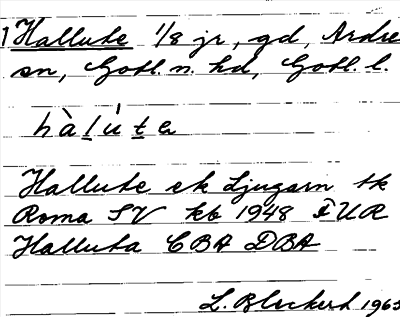 1 Hallute 1/8 jr, gd, Ardre
sn, Gotl. n. hd, Gotl. l.
hàlúta
Hallute ek Ljugarn tk
Roma SV kb 1948 FUR
Halluta CBA DBA
L. Bleckert 1965